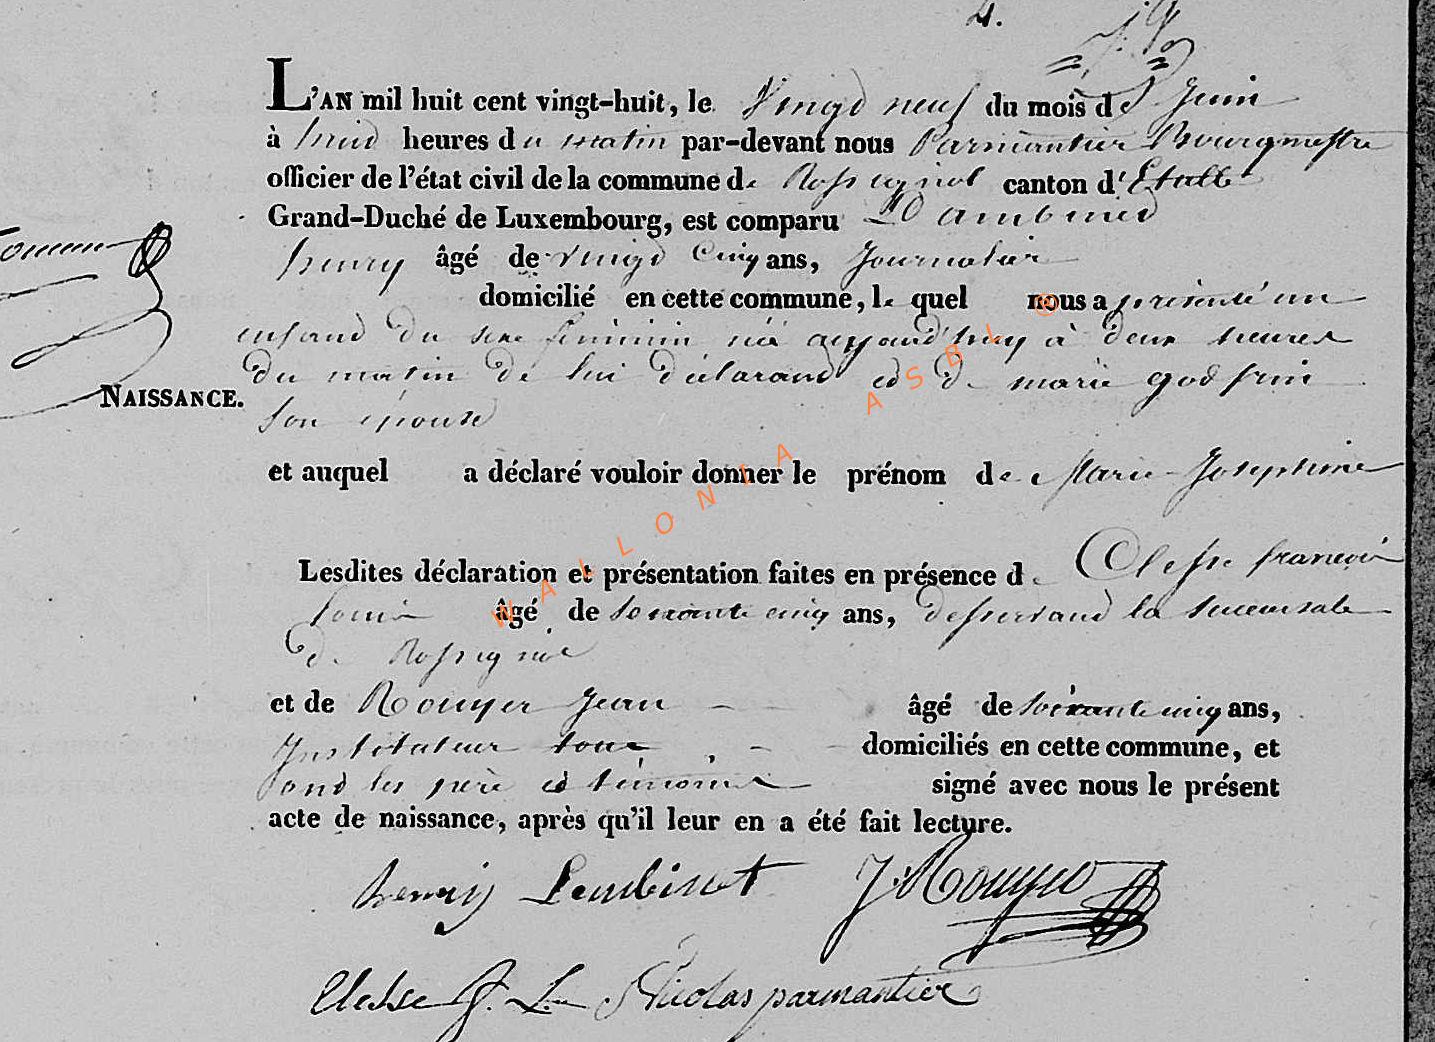 4.
L'AN mil huit cent vingt-huit, le Vingt neuf du mois de Juin
à huit heures du matin par-devant nous Parmantier Bourgmestre
officier de l'état civil de la commune de Rossignol canton d'Etalle
Grand-Duché de Luxembourg, est comparu Lambinet
henry âgé de vingt Cinq ans, Journalier
domicilié en cette commune, le quel nous a présenté un
enfant du sexe féminin née aujourd'huy à deux heures
du matin de lui déclarant et de marie godfrin
NAISSANCE.
son épouse
et auquel a déclaré vouloir donner le prénom de Marie Josephine
Lesdites déclaration et présentation faites en présence de Clesse francois
Louis âgé de soixante cinq ans, desservant la succursale
de Rossignol
et de Rouyer Jean âgé de soixante cinq ans,
Instituteur tous domiciliés en cette commune, et
ont les père et témoins signé avec nous le présent
acte de naissance, après qu'il leur en a été fait lecture.
henry Lambinet J Rouyer
Clesse f. L. Nicolas parmantier
WALLONIA ASBL ®